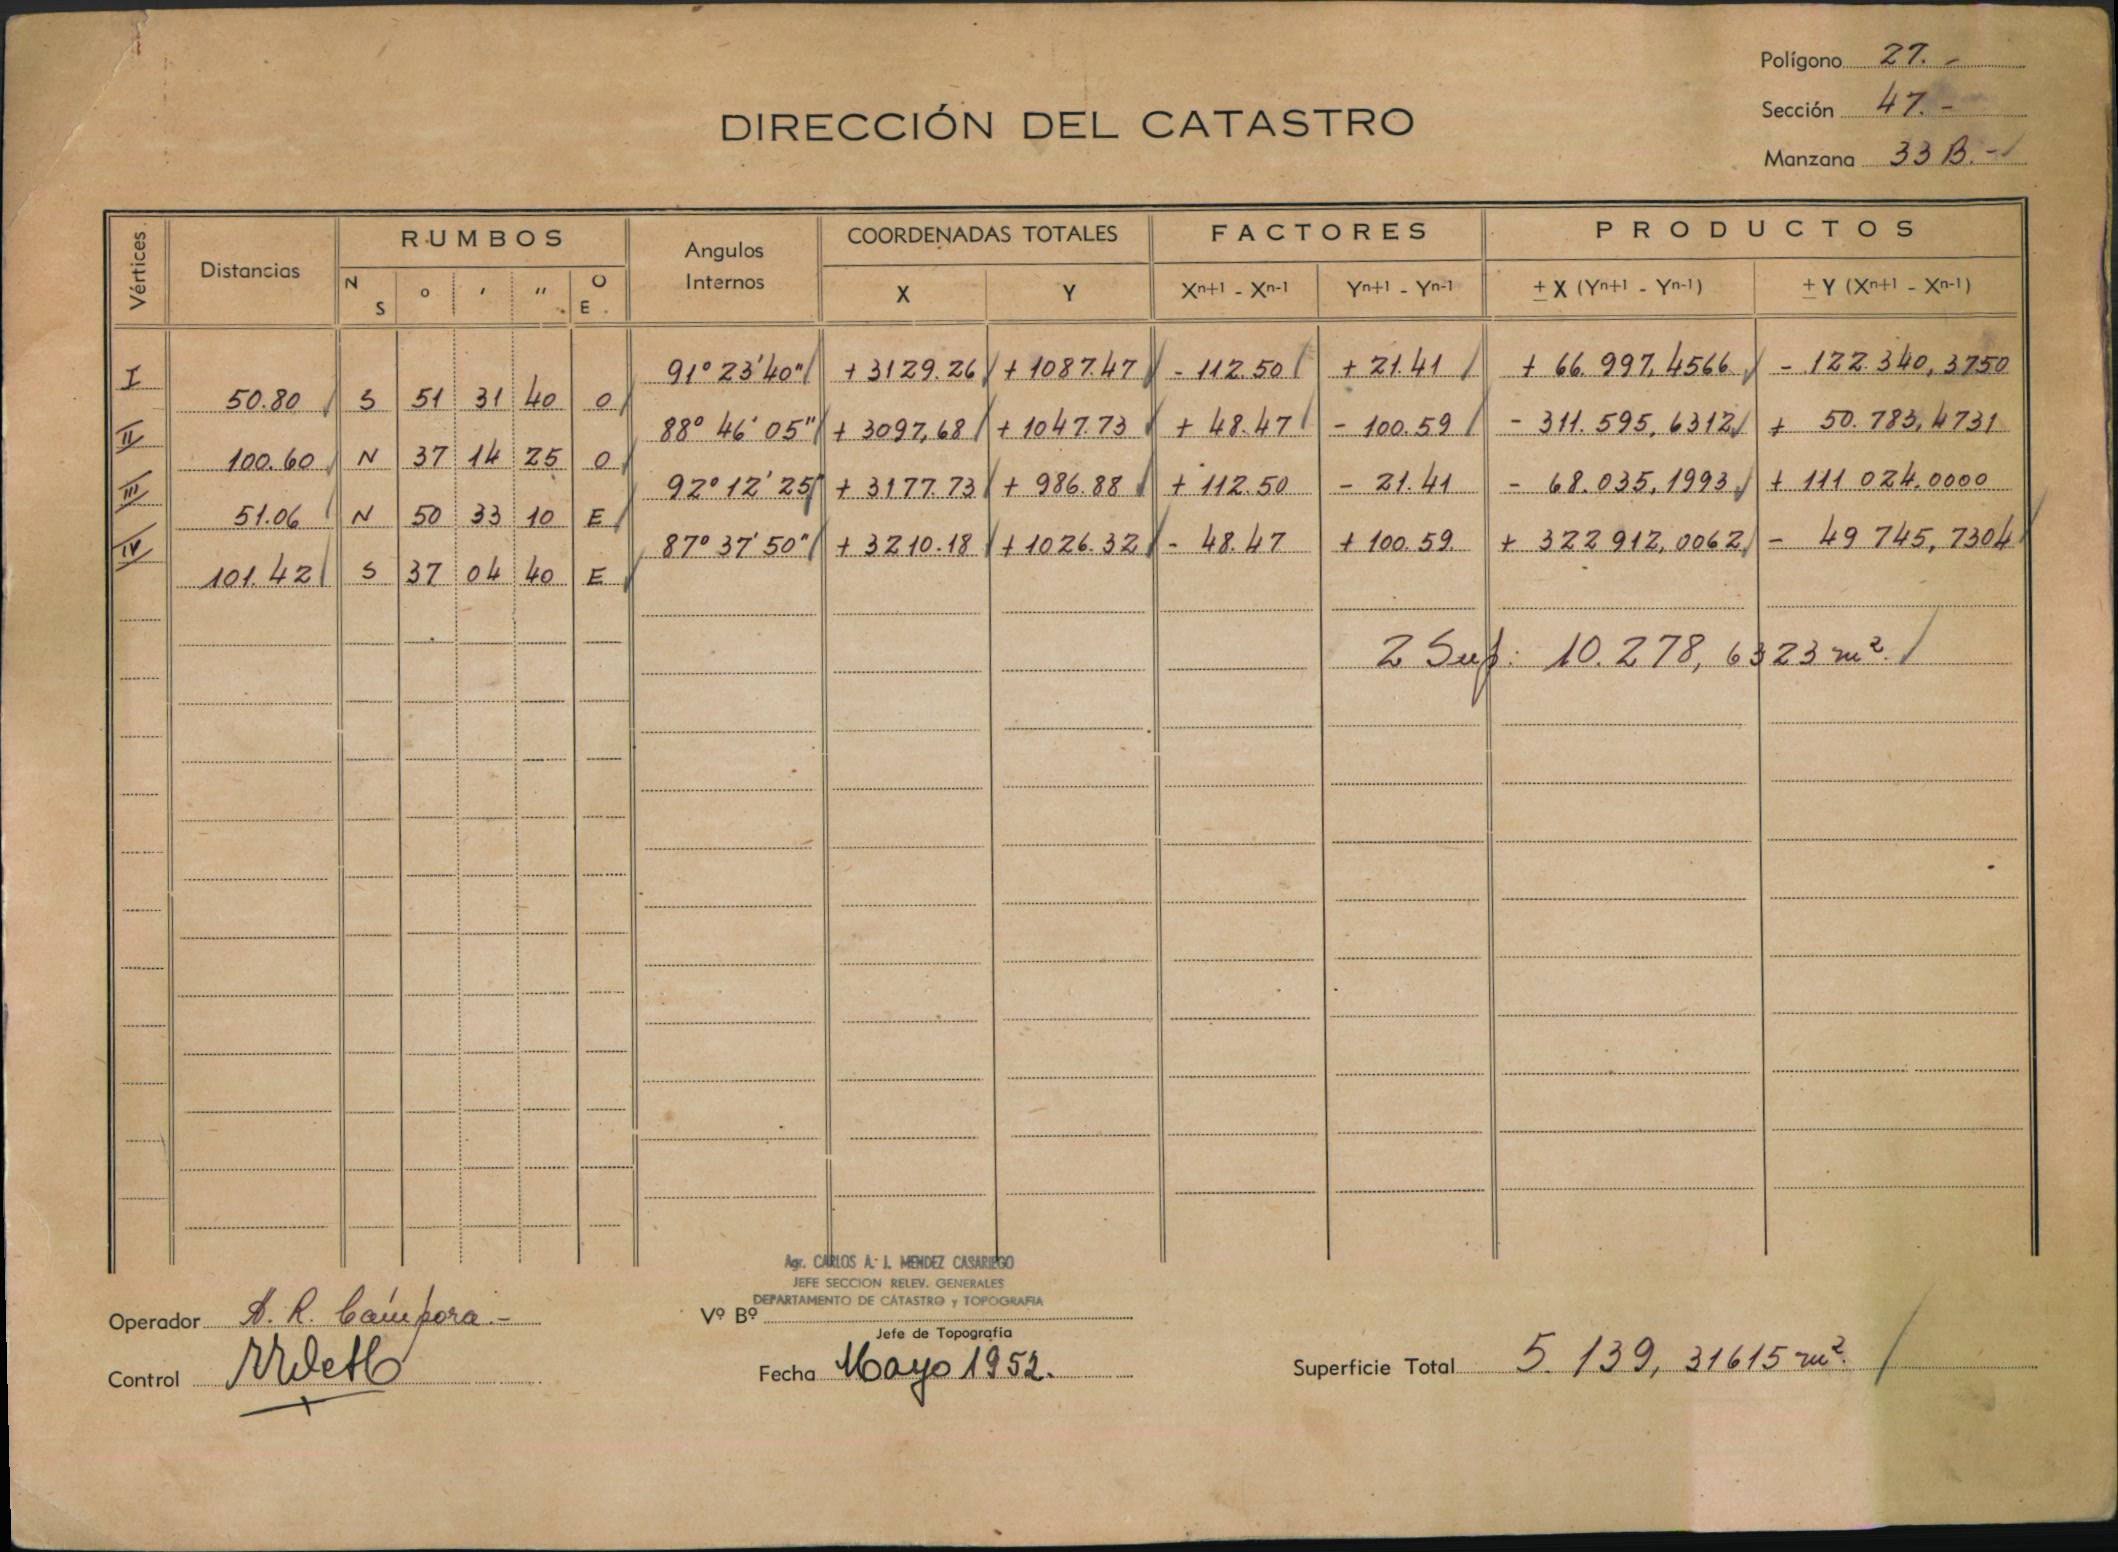 Polígono 27. -
Sección 47. -
Manzana 33 B. -
DIRECCIÓN DEL CATASTRO
Vértices Distancias RUMBOS Angulos Internos COORDENADAS TOTALES FACTORES PRODUCTOS
N S ° ' " O E X Y Xn+1 - Xn-1 Yn+1 - Yn-1 ± X (Yn+1 - Yn-1) ± Y (Xn+1 - Xn-1)
I 91° 23' 40" + 3129.26 + 1087.47 - 112.50 + 21.41 + 66.997,4566 - 122.340,3750
50.80 S 51 31 40 O
II 88° 46' 05" + 3097,68 + 1047.73 + 48.47 - 100.59 - 311.595,6312 + 50.783,4731
100.60 N 37 14 25 O
III 92° 12' 25" + 3177.73 + 986.88 + 112.50 - 21.41 - 68.035,1993 + 111 024.0000
51.06 N 50 33 10 E
IV 87° 37' 50" + 3210.18 + 1026.32 - 48.47 + 100.59 + 322 912,0062 - 49 745,7304
101.42 S 37 04 40 E
2 Sup: 10.278,6323 m².
Agr. CARLOS A. J. MENDEZ CASARIEGO
JEFE SECCION RELEV. GENERALES
DEPARTAMENTO DE CATASTRO y TOPOGRAFIA
Operador A. R. Cámpora. -
Vº Bº
Jefe de Topografía
Control
Fecha Mayo 1952.
Superficie Total 5.139,31615 m².